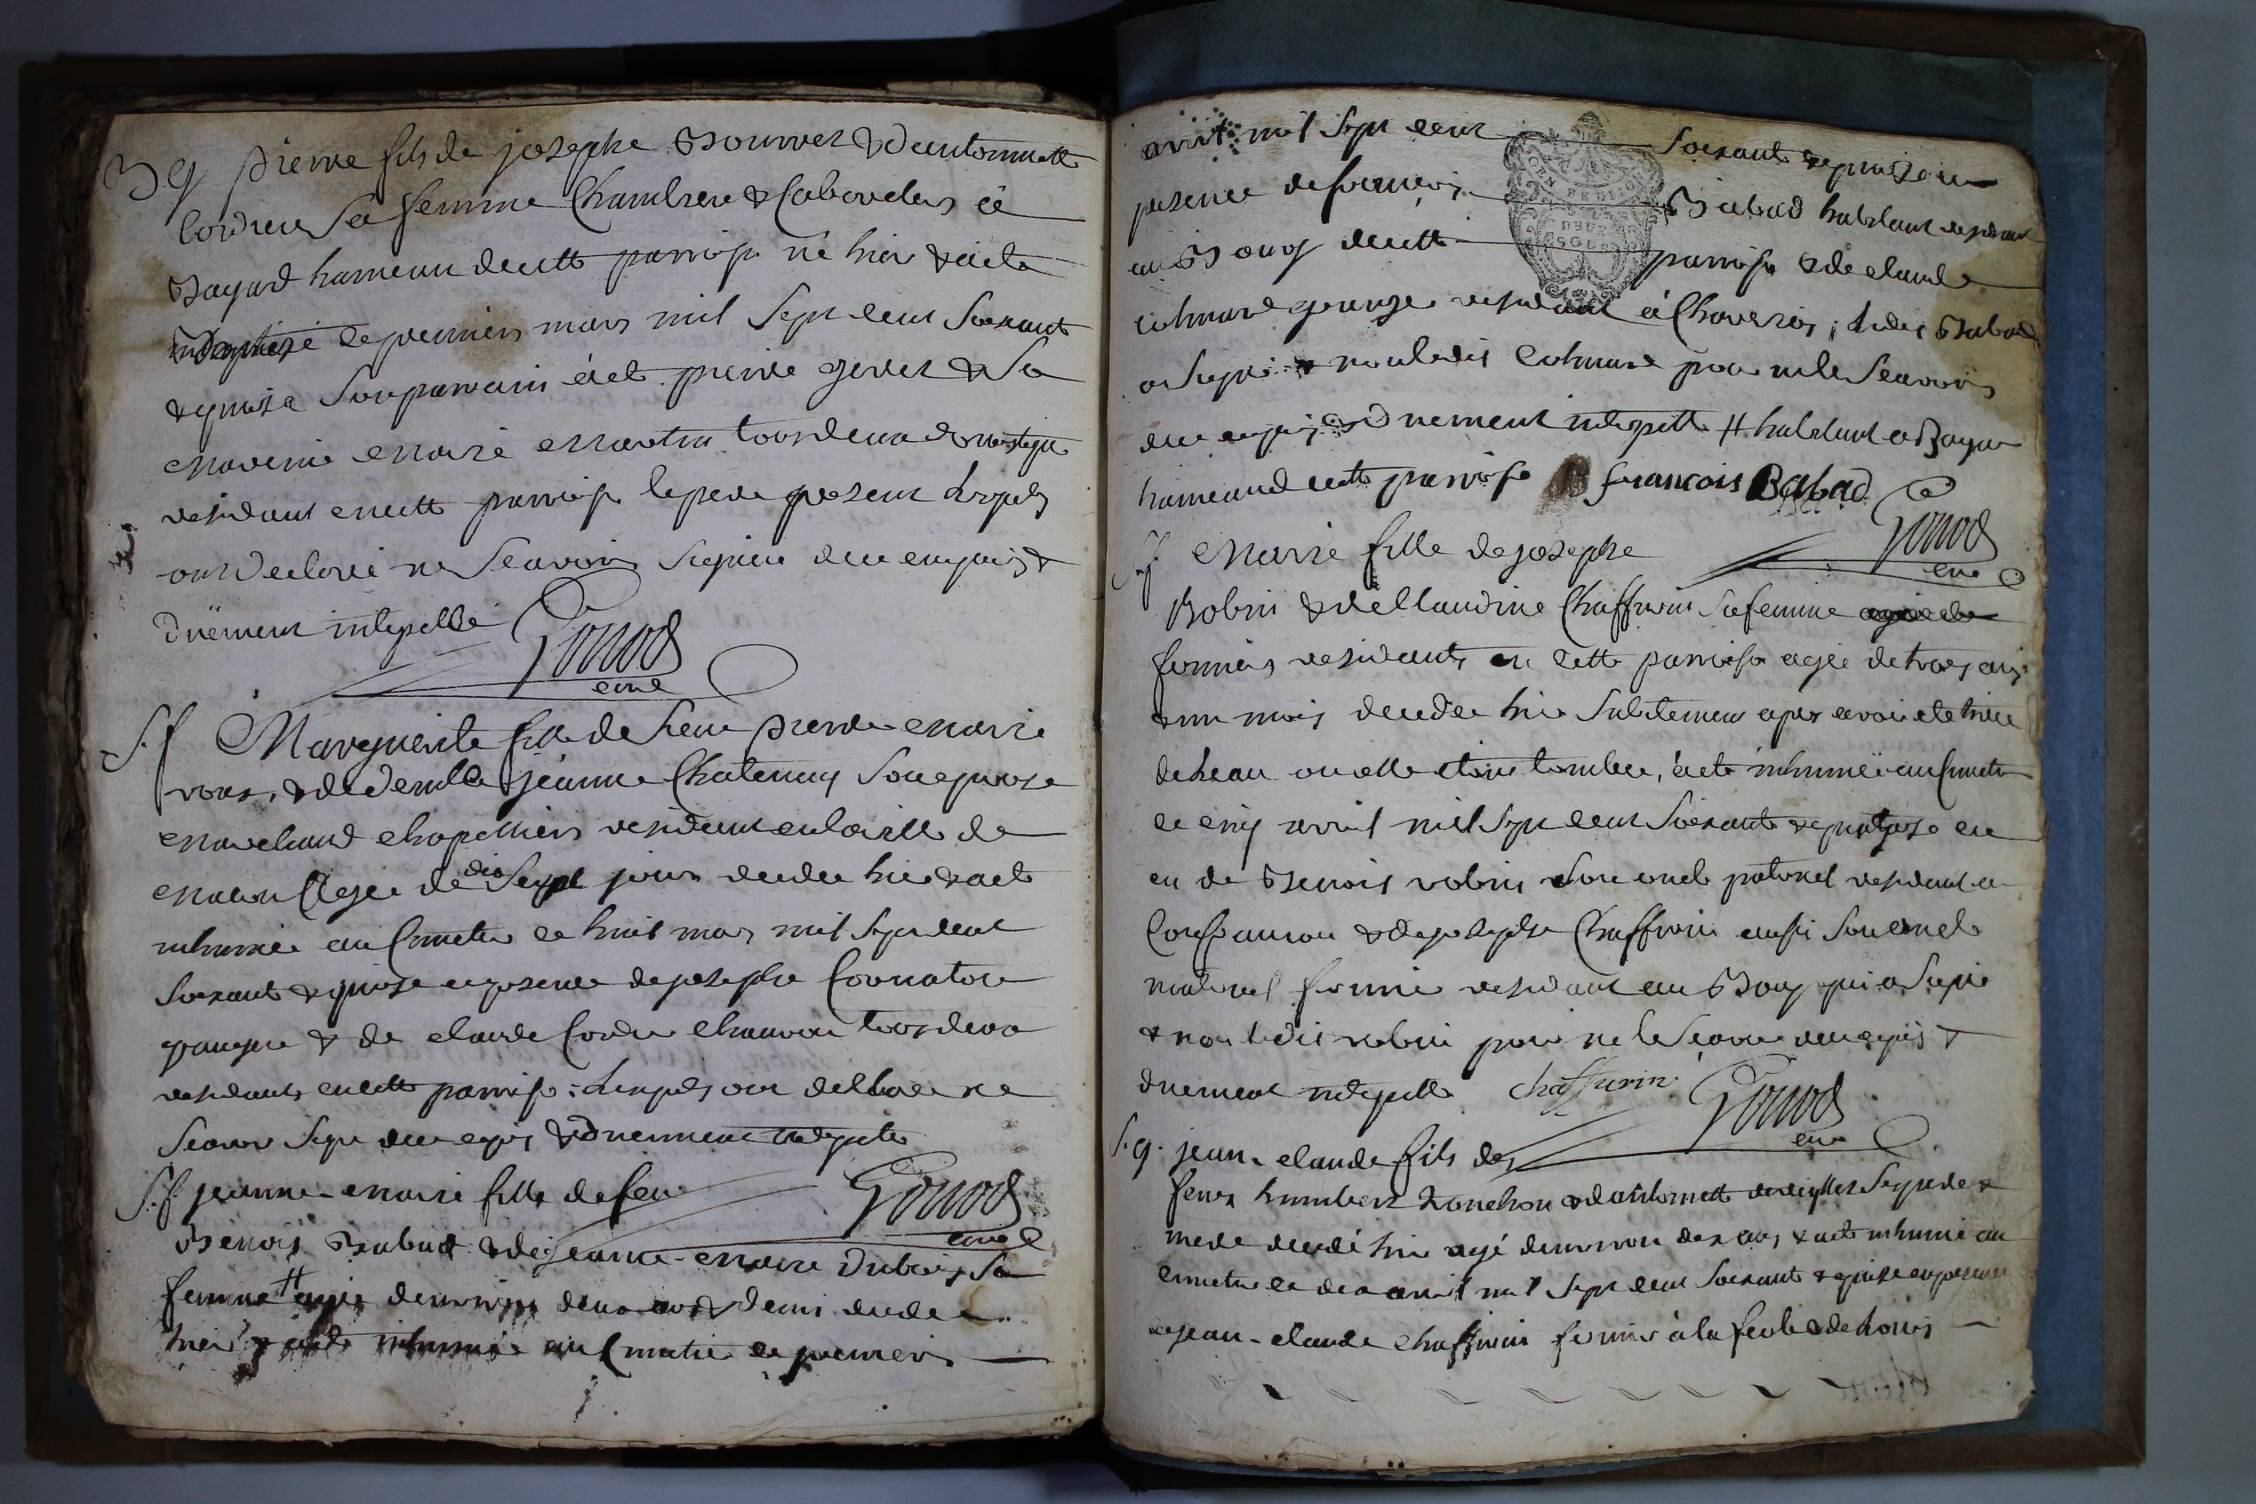 Bg pierre fils de josephe Bourret & dentonnette
Cordier Sa femme Chambrere & Laboureur à
Bayard hameau de cette parroisse né hier & a ete
Baptisé le premier mars mil Sept cent Soixante
& quinze Son parrain a ete pierre & Sa
Marenie Marie Martin tous deux
residants en cette parroisse le pere present lesquels
ont declaré ne Scavoir Signer de ce enquis &
duëment intepellé Gonod
curé
S. f Marguerite fille de Sieur pierre Marie
& de demlle jeanne Chatenay Son epouse
Marchand chapellier resident en la ville de
Macon agée de dix Sept jours decedee hier & a ete
inhumée au Cimetiere le huit mars mil Sept cent
Soixante & quinze en presence de josephe
granger & de claude Cordier tous deux
residants en cette parroisse ; lesquels ont declaré ne
Scavoir Signer de ce enquis & duement intepellés
S. f. jeanne-marie fille de feu Gonod
curé
Benois Babad & de jeanne-marie Dubois Sa
femme # agée denviron deux ans & demi decedee
hier & a ete inhumée au Cimetiere le premier
avril mil Sept cent Soixante & quinze en
presence de francois Babad habitant resident
au Bourg de cette parroisse & de claude
colmard granger resident à Chaveros ; ledit Babad
a Signé & non ledit Colmard pour ne le Scavoir
de ce enquis & duement intepellé # habitant a Bayar
hameau de cette parroisse francois Babad
Gonod
curé
S. f Marie fille de josephe
Robin & de Claudine Chaffurin Sa femme
fermiers residants en cette parroisse agée de trois ans
& un mois decedee hier Subitement apres avoir ete tirée
de leau ou elle etoit tombée, a ete inhumée au Cimetiere
le cinq avril mil Sept cent Soixante & quinze en
en de Benois robin Son oncle paternel resident a
Confrancon & de josephe Chaffurin aussi Son oncle
maternel fermier resident au Bourg qui a Signé
& non ledit robin pour ne le Scavoir de ce enquis &
duement intepellé chaffurin Gonod
curé
S. g. jean-claude fils des
feux humbert & dantoinette Ses pere &
mere decedé hier agé denviron dix ans & a ete inhumé au
cimetiere le dix avril mil Sept cent Soixante & quinze en presence
de jean-claude chaffurin fermier à la & de Loüis